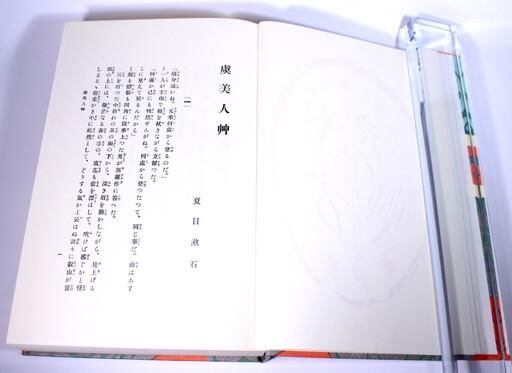 虞美人艸
夏目漱石
一
「隨分遠いね。元來何處から登るのだ」
と一人が手巾で額を拭きながら立留つた。
「何處か己にも判然せんがね。何處から登つたつて、同じ事だ。山はあす
こに見えて居るんだから」
と顏も體軀も四角に出來上つた男が無雜作に答へた。
反を打つた中折れの茶の廂の下から、深き眉を動かしながら、見上げる
頭の上には、微茫なる春の空の、底迄も藍を漂はして、吹けば搖くかと怪
しまるゝ程柔かき中に屹然として、どうする氣かと云はぬ許りに叡山が聳
虞美人艸
一